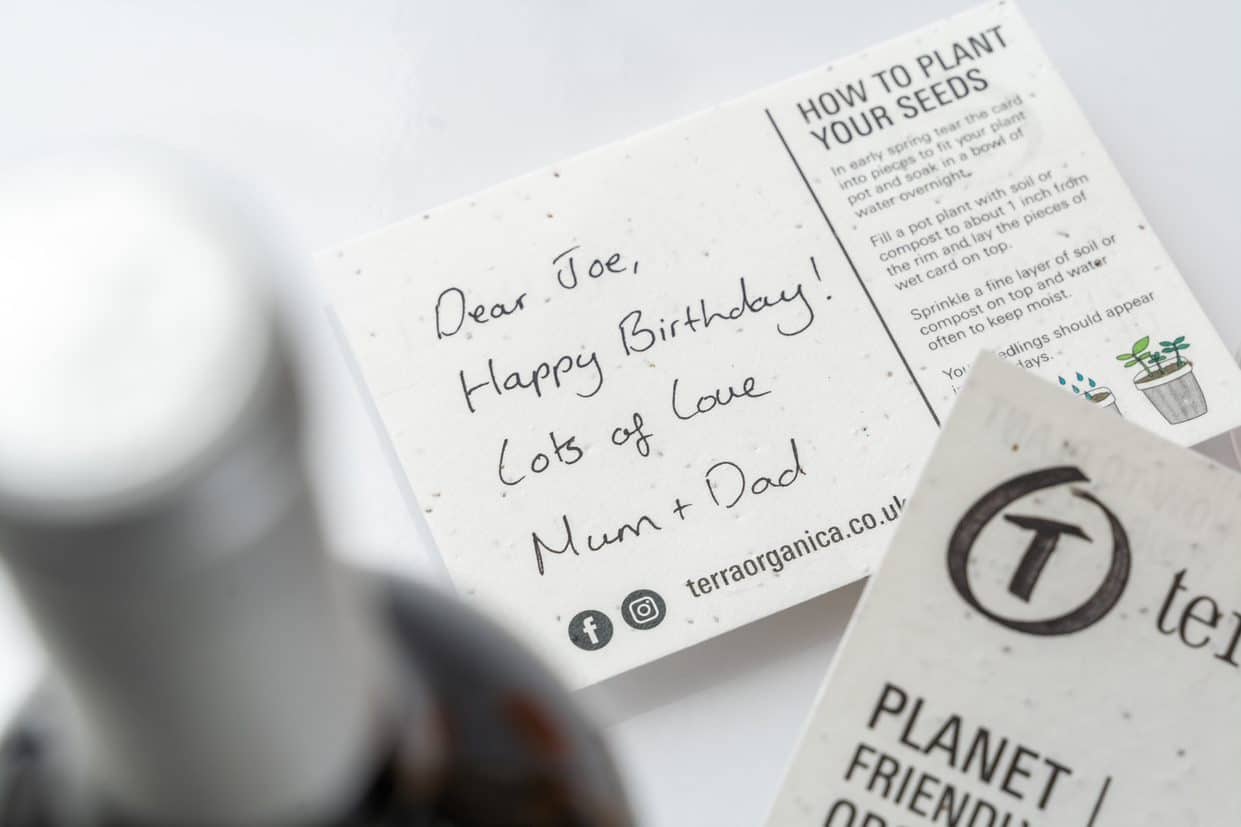 Dear Joe,
Happy Birthday!
Lots of Love
Mum + Dad
terraorganica.co.uk
HOW TO PLANT
YOUR SEEDS
In early spring tear the card
into pieces to fit your plant
pot and soak in a bowl of
water overnight.
Fill a pot plant with soil or
compost to about 1 inch from
the rim and lay the pieces of
wet card on top.
Sprinkle a fine layer of soil or
compost on top and water
often to keep moist.
should appear
days.
T
PLANET